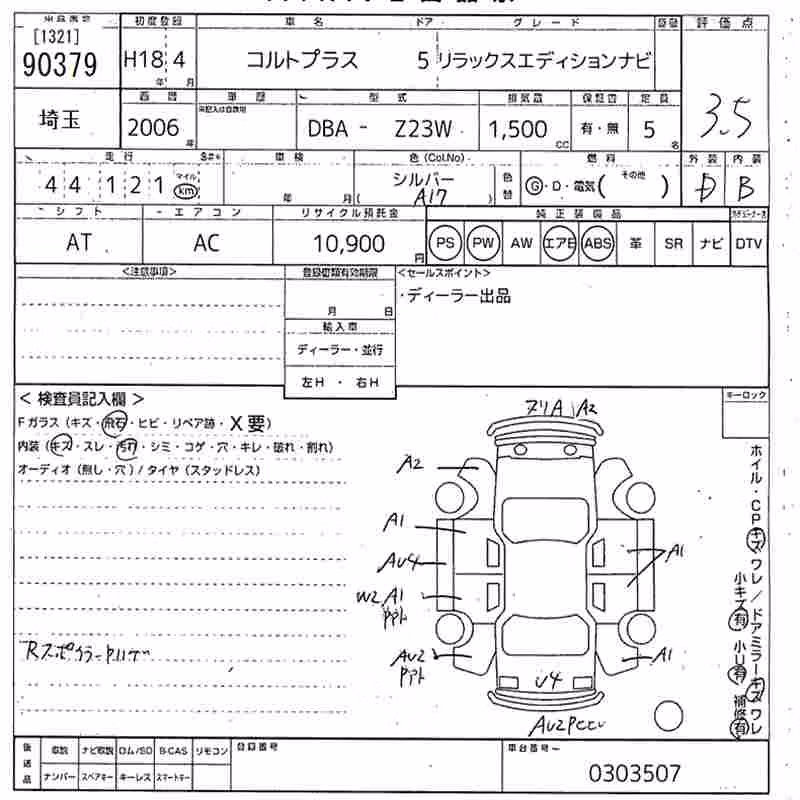 初度登録 車名 ドア グレード 評価点
[1321]
90379 H18 4 コルトプラス 5 リラックスエディションナビ
年 月
3.5
車歴 型式 排気量 保証書 定員
埼玉 2006 年 DBA - Z23W 1,500 CC 有・無 5 名
走行 車検 色(Col.No) 燃料 外装 内装
44121 マイル km 年 月 シルバー A17 色替 G・D・電気( その他 ) D B
シフト エアコン リサイクル預託金 純正装備品
AT AC 10,900 円 PS PW AW エアB ABS 革 SR ナビ DTV
<注意事項> 登録書類有効期限 <セールスポイント>
・ディーラー出品
月 日
輸入車
ディーラー・並行
左H ・ 右H
< 検査員記入欄 >
キーロック
Fガラス(キズ・飛石・ヒビ・リペア跡・X要)
内装(キズ・スレ・汚れ・シミ・コゲ・穴・キレ・破れ・割れ)
オーディオ(無し・穴)/タイヤ(スタッドレス)
ヌリA A2
A2
A1
A1
AU4
W2 A1
AU2
A1
U4
ホイル・CPキズワレ/ドアミラーキズワレ
小キズ有 小U有 補修有
後送品 取説 ナビ取説 ロム/SD B-CAS リモコン 登録番号 車台番号
ナンバー スペアキー キーレス スマートキー
0303507